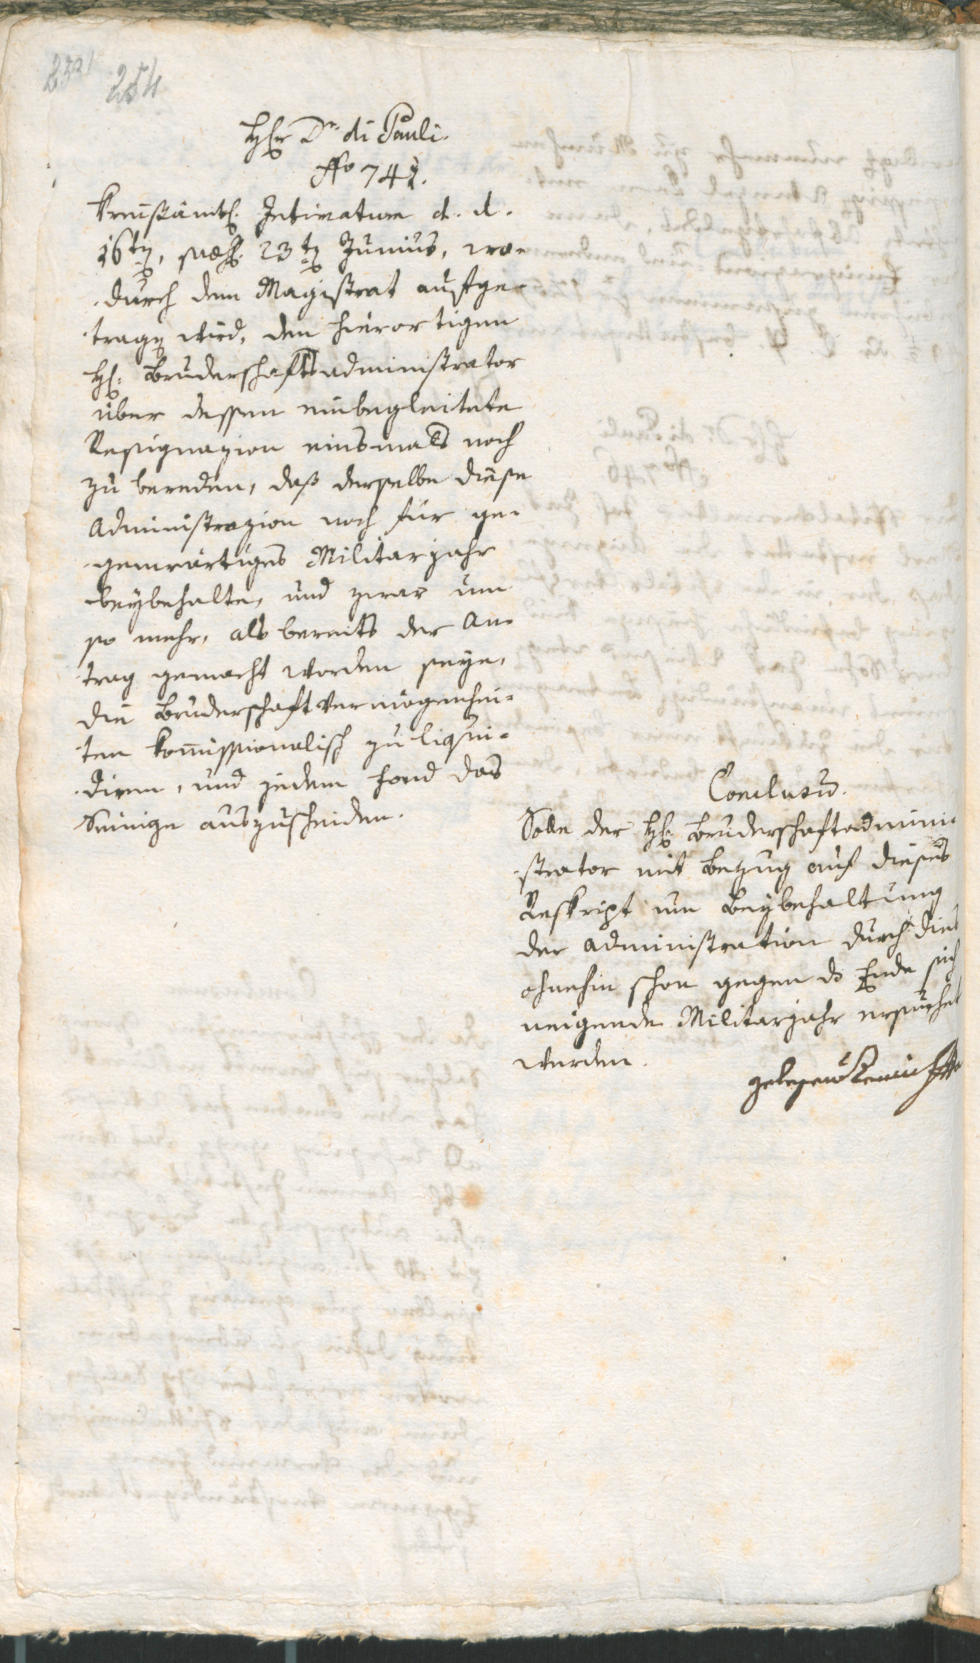 254
H(er)r Dr. di Pauli.
No 742.
Kreisämtl. Intimatum d. d.
16ten, praes. 23ten Junius, wo-
durch dem Magistrat aufge-
tragen wird, den hierortigen
H: Bruderschaftsadministrator
über dessen einbegleitete
Resignazion einsmals noch
zu bereden, daß derselbe diese
Administrazion noch für ge-
genwärtiges Militarjahr
beybehalte, und zwar um
so mehr, als bereits der An-
trag gemacht worden seye,
die Bruderschaftvermögenhei-
ten kommissionalisch zu liqui-
diren, und jedem Fond das
Seinige auszuscheiden.
Conclusum.
Solle der H: Bruderschaftadmini-
strator mit Bezug auf dieses
Reskript um Beybehaltung
der Administration durch dies
ohnehin schon gegen das Ende sich
neigende Militarjahr ersuchet
werden.